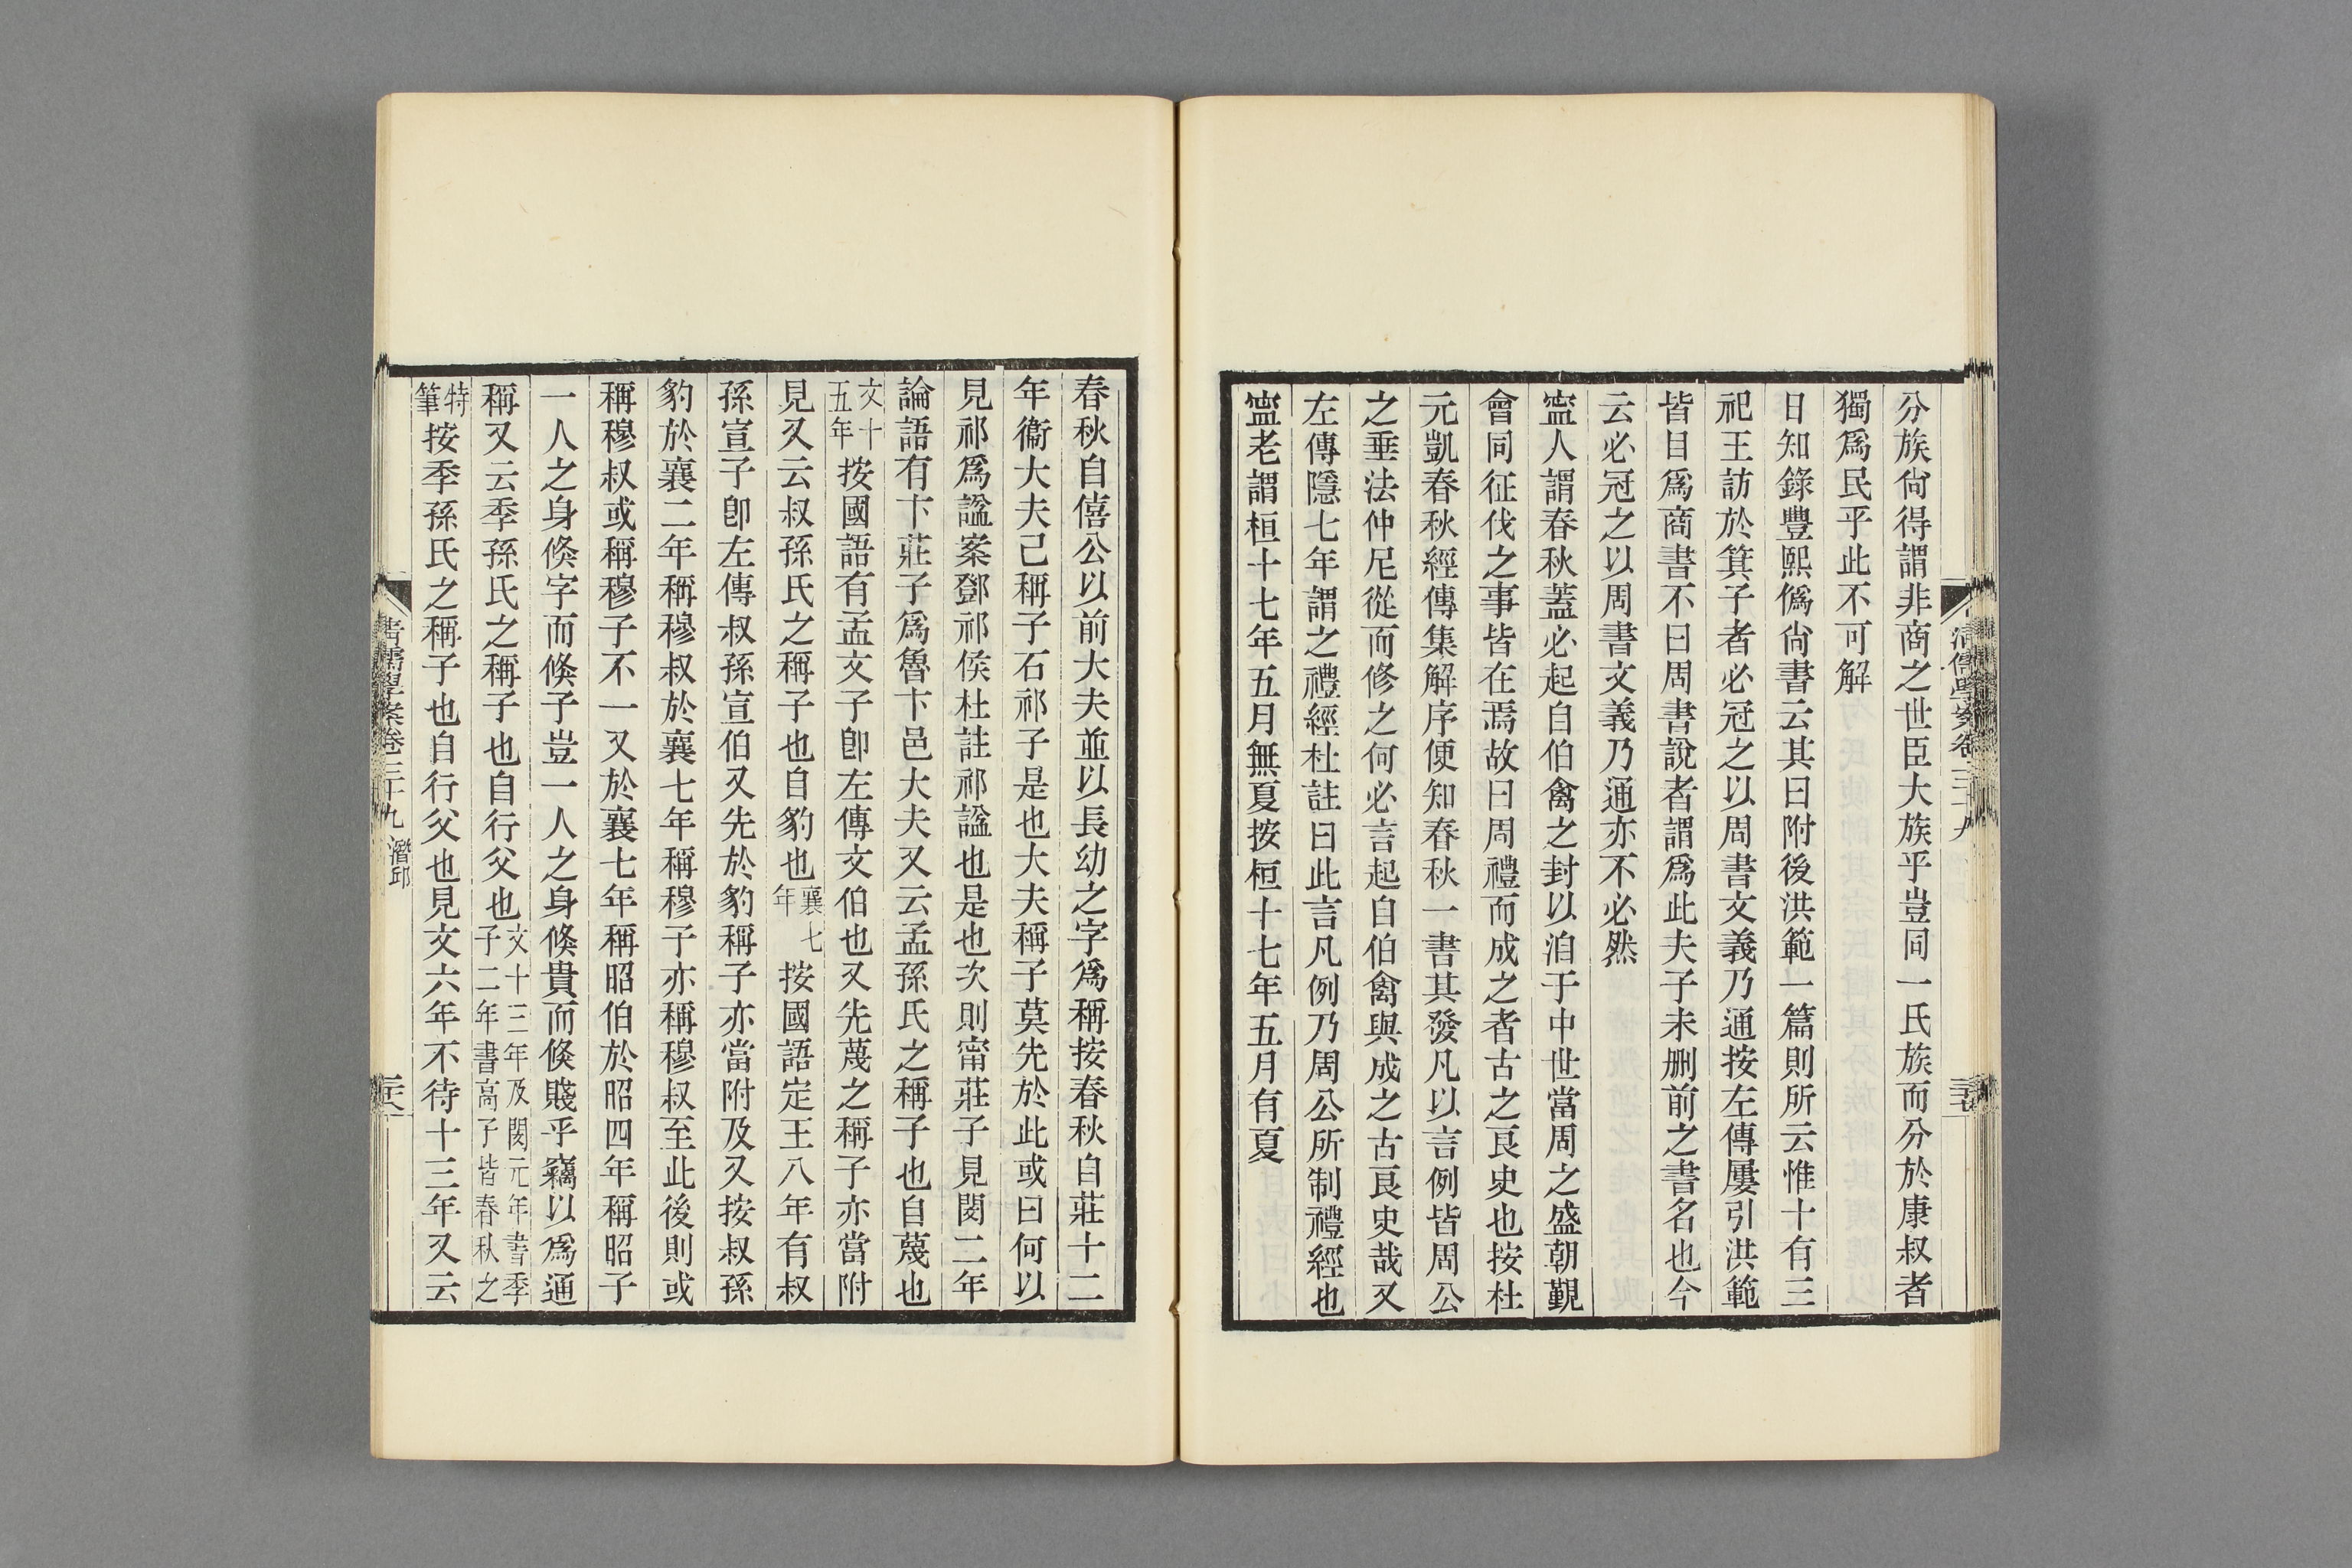 分族尙得謂非商之世臣大族乎豈同一氏族而分於康叔者
獨爲民乎此不可解
日知錄豐熙僞尙書云其曰附後洪範一篇則所云惟十有三
祀王訪於箕子者必冠之以周書文義乃通按左傳屢引洪範
皆目爲商書不曰周書說者謂爲此夫子未刪前之書名也今
云必冠之以周書文義乃通亦不必然
寍人謂春秋蓋必起自伯禽之封以洎于中世當周之盛朝覲
會同征伐之事皆在焉故曰周禮而成之者古之良史也按杜
元凱春秋經傳集解序便知春秋一書其發凡以言例皆周公
之垂法仲尼從而修之何必言起自伯禽與成之古良史哉又
左傳隱七年謂之禮經杜註曰此言凡例乃周公所制禮經也
寍老謂桓十七年五月無夏按桓十七年五月有夏
清儒學案卷三十九
三十七
春秋自僖公以前大夫並以長幼之字爲稱按春秋自莊十二
年衞大夫己稱子石祁子是也大夫稱子莫先於此或曰何以
見祁爲諡案鄧祁侯杜註祁諡也是也次則甯莊子見閔二年
論語有卞莊子爲魯卞邑大夫又云孟孫氏之稱子也自蔑也
文十五年按國語有孟文子卽左傳文伯也又先蔑之稱子亦當附
見又云叔孫氏之稱子也自豹也襄七年按國語定王八年有叔
孫宣子卽左傳叔孫宣伯又先於豹稱子亦當附及又按叔孫
豹於襄二年稱穆叔於襄七年稱穆子亦稱穆叔至此後則或
稱穆叔或稱穆子不一又於襄七年稱昭伯於昭四年稱昭子
一人之身倐字而倐子豈一人之身倐貴而倐賤乎竊以爲通
稱又云季孫氏之稱子也自行父也文十三年及閔元年書季子二年書高子皆春秋之
特筆按季孫氏之稱子也自行父也見文六年不待十三年又云
清儒學案卷三十九 潛邱
三十八